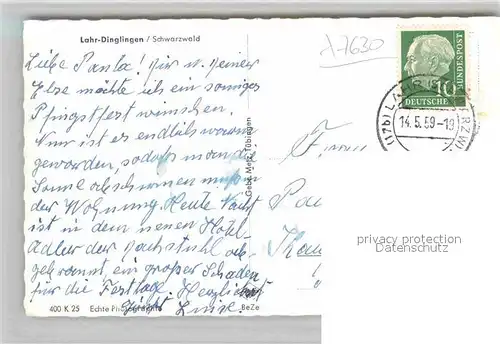 Lahr-Dinglingen / Schwarzwald
Liebe Paula! Dir u. Deiner
Else möchte ich ein sonniges
Pfingstfest wünschen.
Nun ist es endlich warm
geworden, sodass man die
Sonne
der Wohnung. Heute Nacht
ist in dem neuen Hotel
Adler der Dachstuhl ab-
gebrannt, ein großer Schaden
für die Festtage. Herzlichst
Luise.
400 K 25 Echte Photographie BeZe
Gebr. Metz, Tübingen
λ-7630
DEUTSCHE BUNDESPOST
10
(17b) LAHR (SCHWARZW)
14.5.59-19
privacy protection
Datenschutz